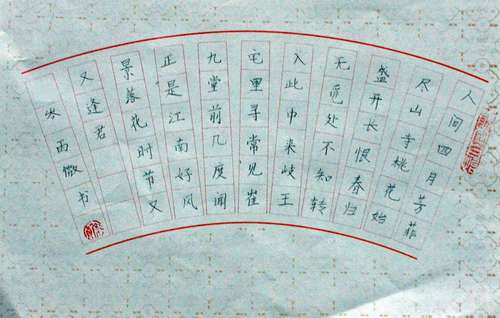 人间四月芳菲
尽山寺桃花始
盛开长恨春归
无觅处不知转
入此中来岐王
宅里寻常见崔
九堂前几度闻
正是江南好风
景落花时节又
又逢君
西微书